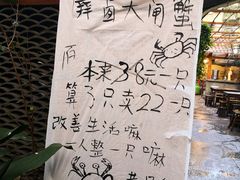 大闸蟹
本来38元一只
算了只卖22一只
改善生活嘛
一人整一只嘛